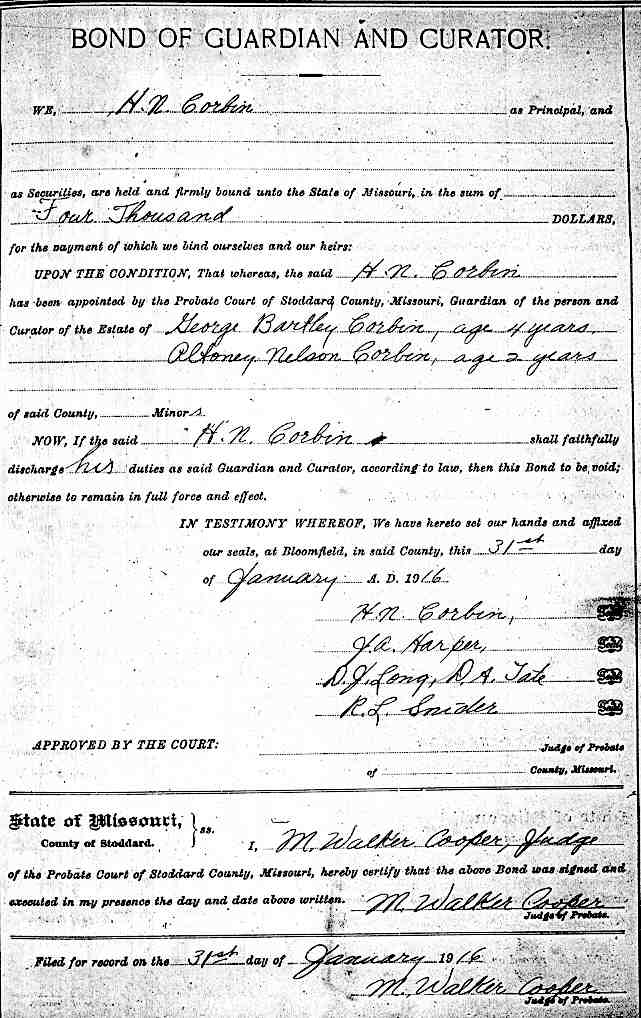 BOND OF GUARDIAN AND CURATOR.
WE, H. N. Corbin as Principal, and
as Securities, are held and firmly bound unto the State of Missouri, in the sum of
Four Thousand DOLLARS,
for the payment of which we bind ourselves and our heirs:
UPON THE CONDITION, That whereas, the said H. N. Corbin
has been appointed by the Probate Court of Stoddard County, Missouri, Guardian of the person and
Curator of the Estate of George Bartley Corbin, age 4 years.
Nelson Corbin, age 2 years
of said County, Minors.
NOW, If the said H. N. Corbin shall faithfully
discharge his duties as said Guardian and Curator, according to law, then this Bond to be void;
otherwise to remain in full force and effect.
IN TESTIMONY WHEREOF, We have hereto set our hands and affixed
our seals, at Bloomfield, in said County, this 31st day
of January A. D. 1916
H. N. Corbin, Seal
J. A. Harper, Seal
D. J. Long, D. A. Tate Seal
R. L. Snider Seal
APPROVED BY THE COURT: Judge of Probate
of County, Missouri.
State of Missouri, } ss.
County of Stoddard. I, M. Walker Cooper, Judge
of the Probate Court of Stoddard County, Missouri, hereby certify that the above Bond was signed and
executed in my presence the day and date above written. M. Walker Cooper
Judge of Probate.
Filed for record on the 31st day of January 1916
M. Walker Cooper
Judge of Probate.